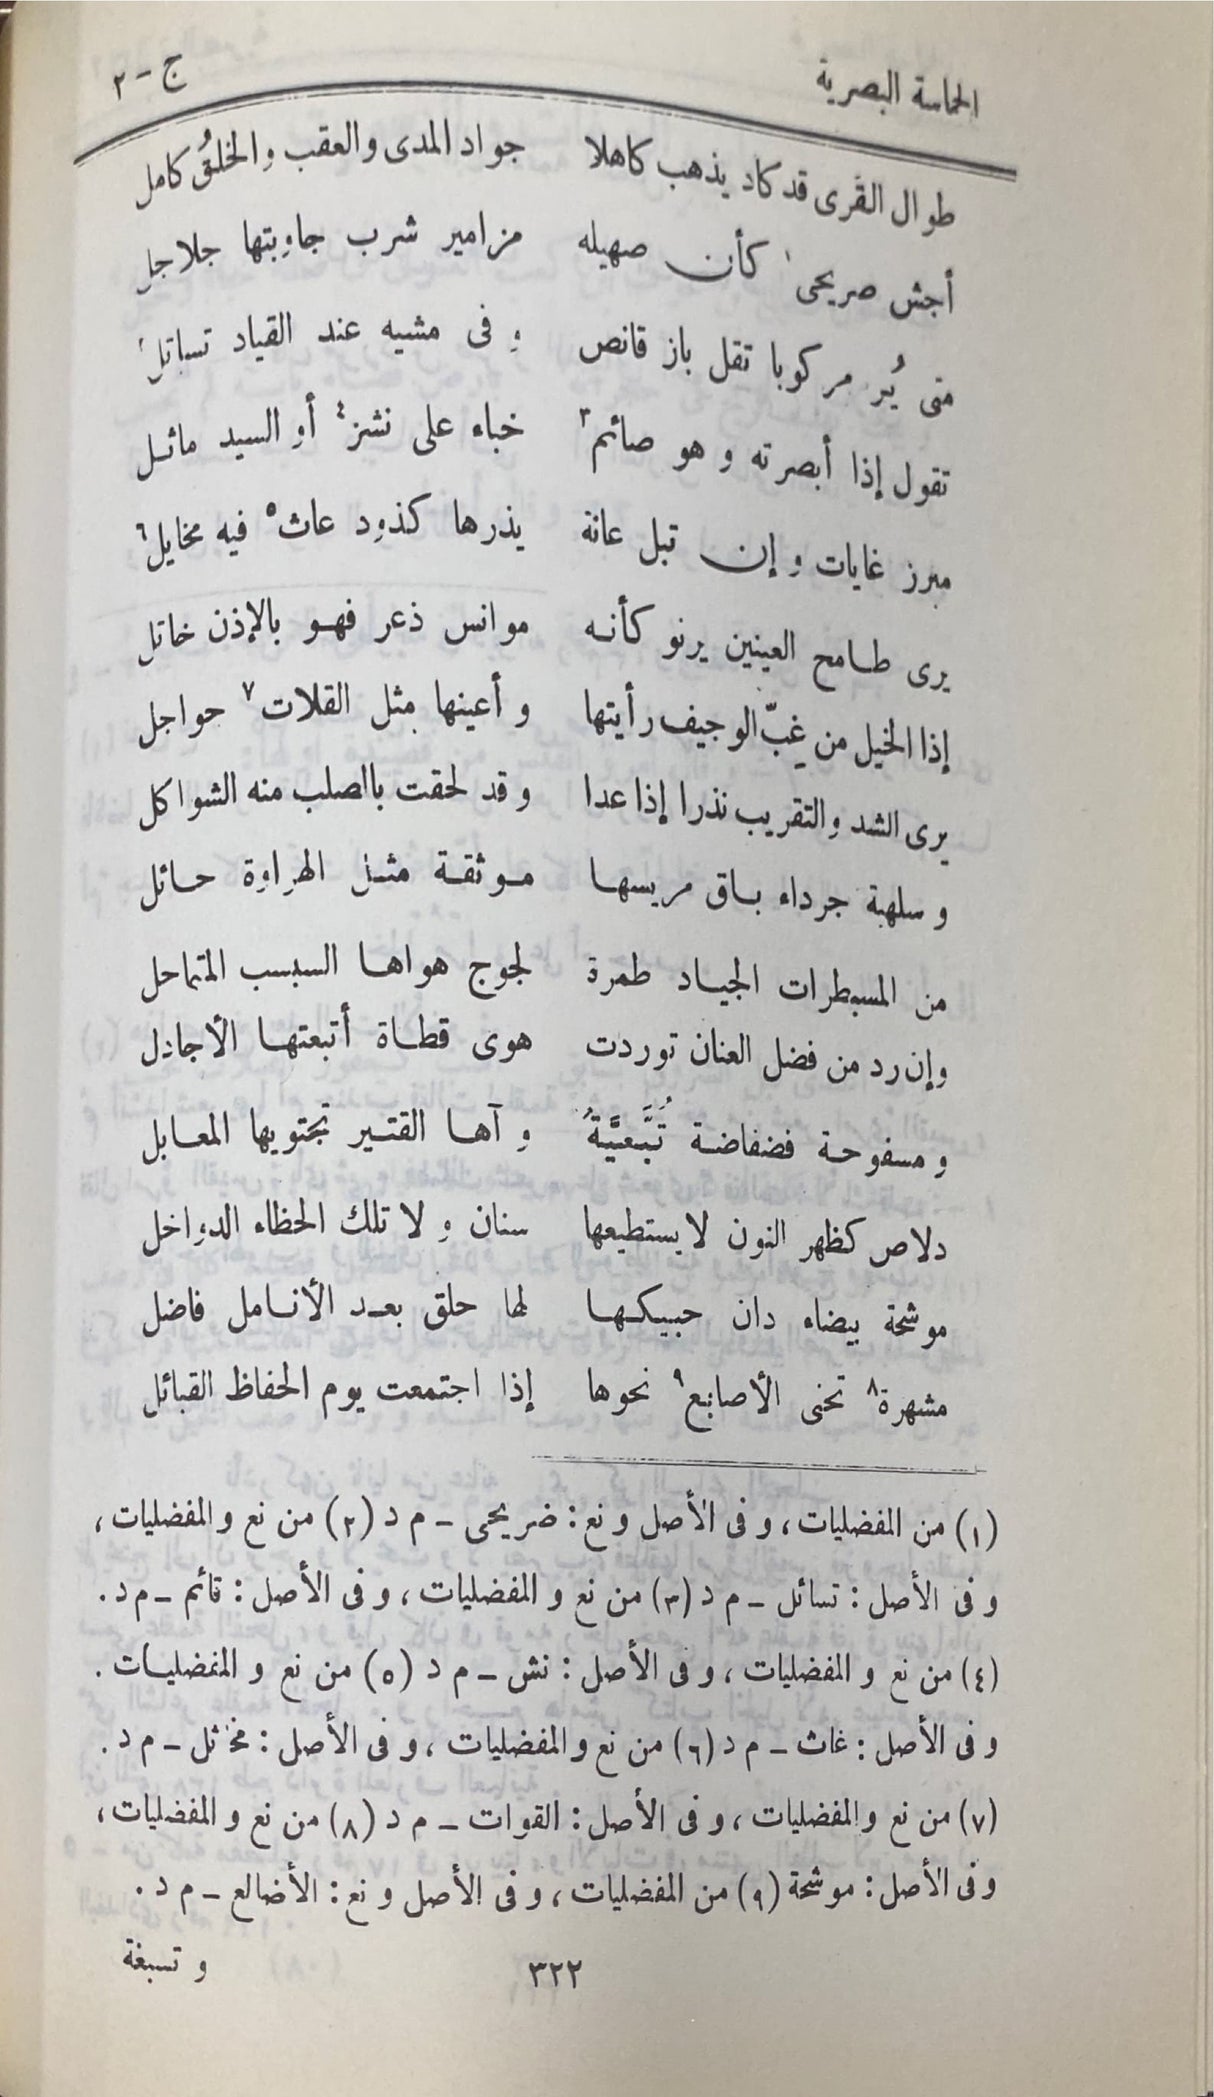 الحماسة البصرية ج - ٢
طوال القَرى قد كاد يذهب كاهلا جواد المدى والعقب والخلقُ كامل
أجش صريحى١ كأن صهيله مزامير شرب جاوبتها جلاجل
متى يُر مركوبا تقل باز قانص و فى مشيه عند القياد تساتل٢
تقول إذا أبصرته و هو صائم٣ خباء على نشز٤ أو السيد ماثل
مبرز غايات و إن تبل عانة يذرها كذود عاث٥ فيه مخايل٦
يرى طامح العينين يرنو كأنه موانس ذعر فهو بالإذن خاتل
إذا الخيل من غِبّ الوجيف رأيتها و أعينها مثل القلات٧ حواجل
يرى الشد والتقريب نذرا إذا عدا و قد لحقت بالصلب منه الشواكل
و سلهبة جرداء باق مريسها موثقة مثل الهراوة حائل
من المسبطرات الجياد طمرة لجوج هواها السبسب المتماحل
وإن رد من فضل العنان توردت هوى قطاة أتبعتها الأجادل
و مسفوحة فضفاضة تُبَّعيَّةُ و آها القتير تجتويها المعابل
دلاص كظهر النون لا يستطيعها سنان و لا تلك الحظاء الدواخل
موشحة بيضاء دان حبيكها لها حلق بعد الأنامل فاضل
مشهرة٨ تحنى الأصابع٩ نحوها إذا اجتمعت يوم الحفاظ القبائل
(١) من المفضليات، و فى الأصل و نع: ضريحى - م د (٢) من نع و المفضليات،
و فى الأصل: تسائل - م د (٣) من نع و المفضليات، و فى الأصل: قائم - م د.
(٤) من نع و المفضليات، و فى الأصل: نش - م د (٥) من نع و المفضليات.
و فى الأصل: غاث - م د (٦) من نع و المفضليات، و فى الأصل: مخثل - م د.
(٧) من نع و المفضليات، و فى الأصل: القوات - م د (٨) من نع و المفضليات،
و فى الأصل: موشحة (٩) من المفضليات، و فى الأصل و نع: الأضالع - م د.
٣٢٢ و تسبغة